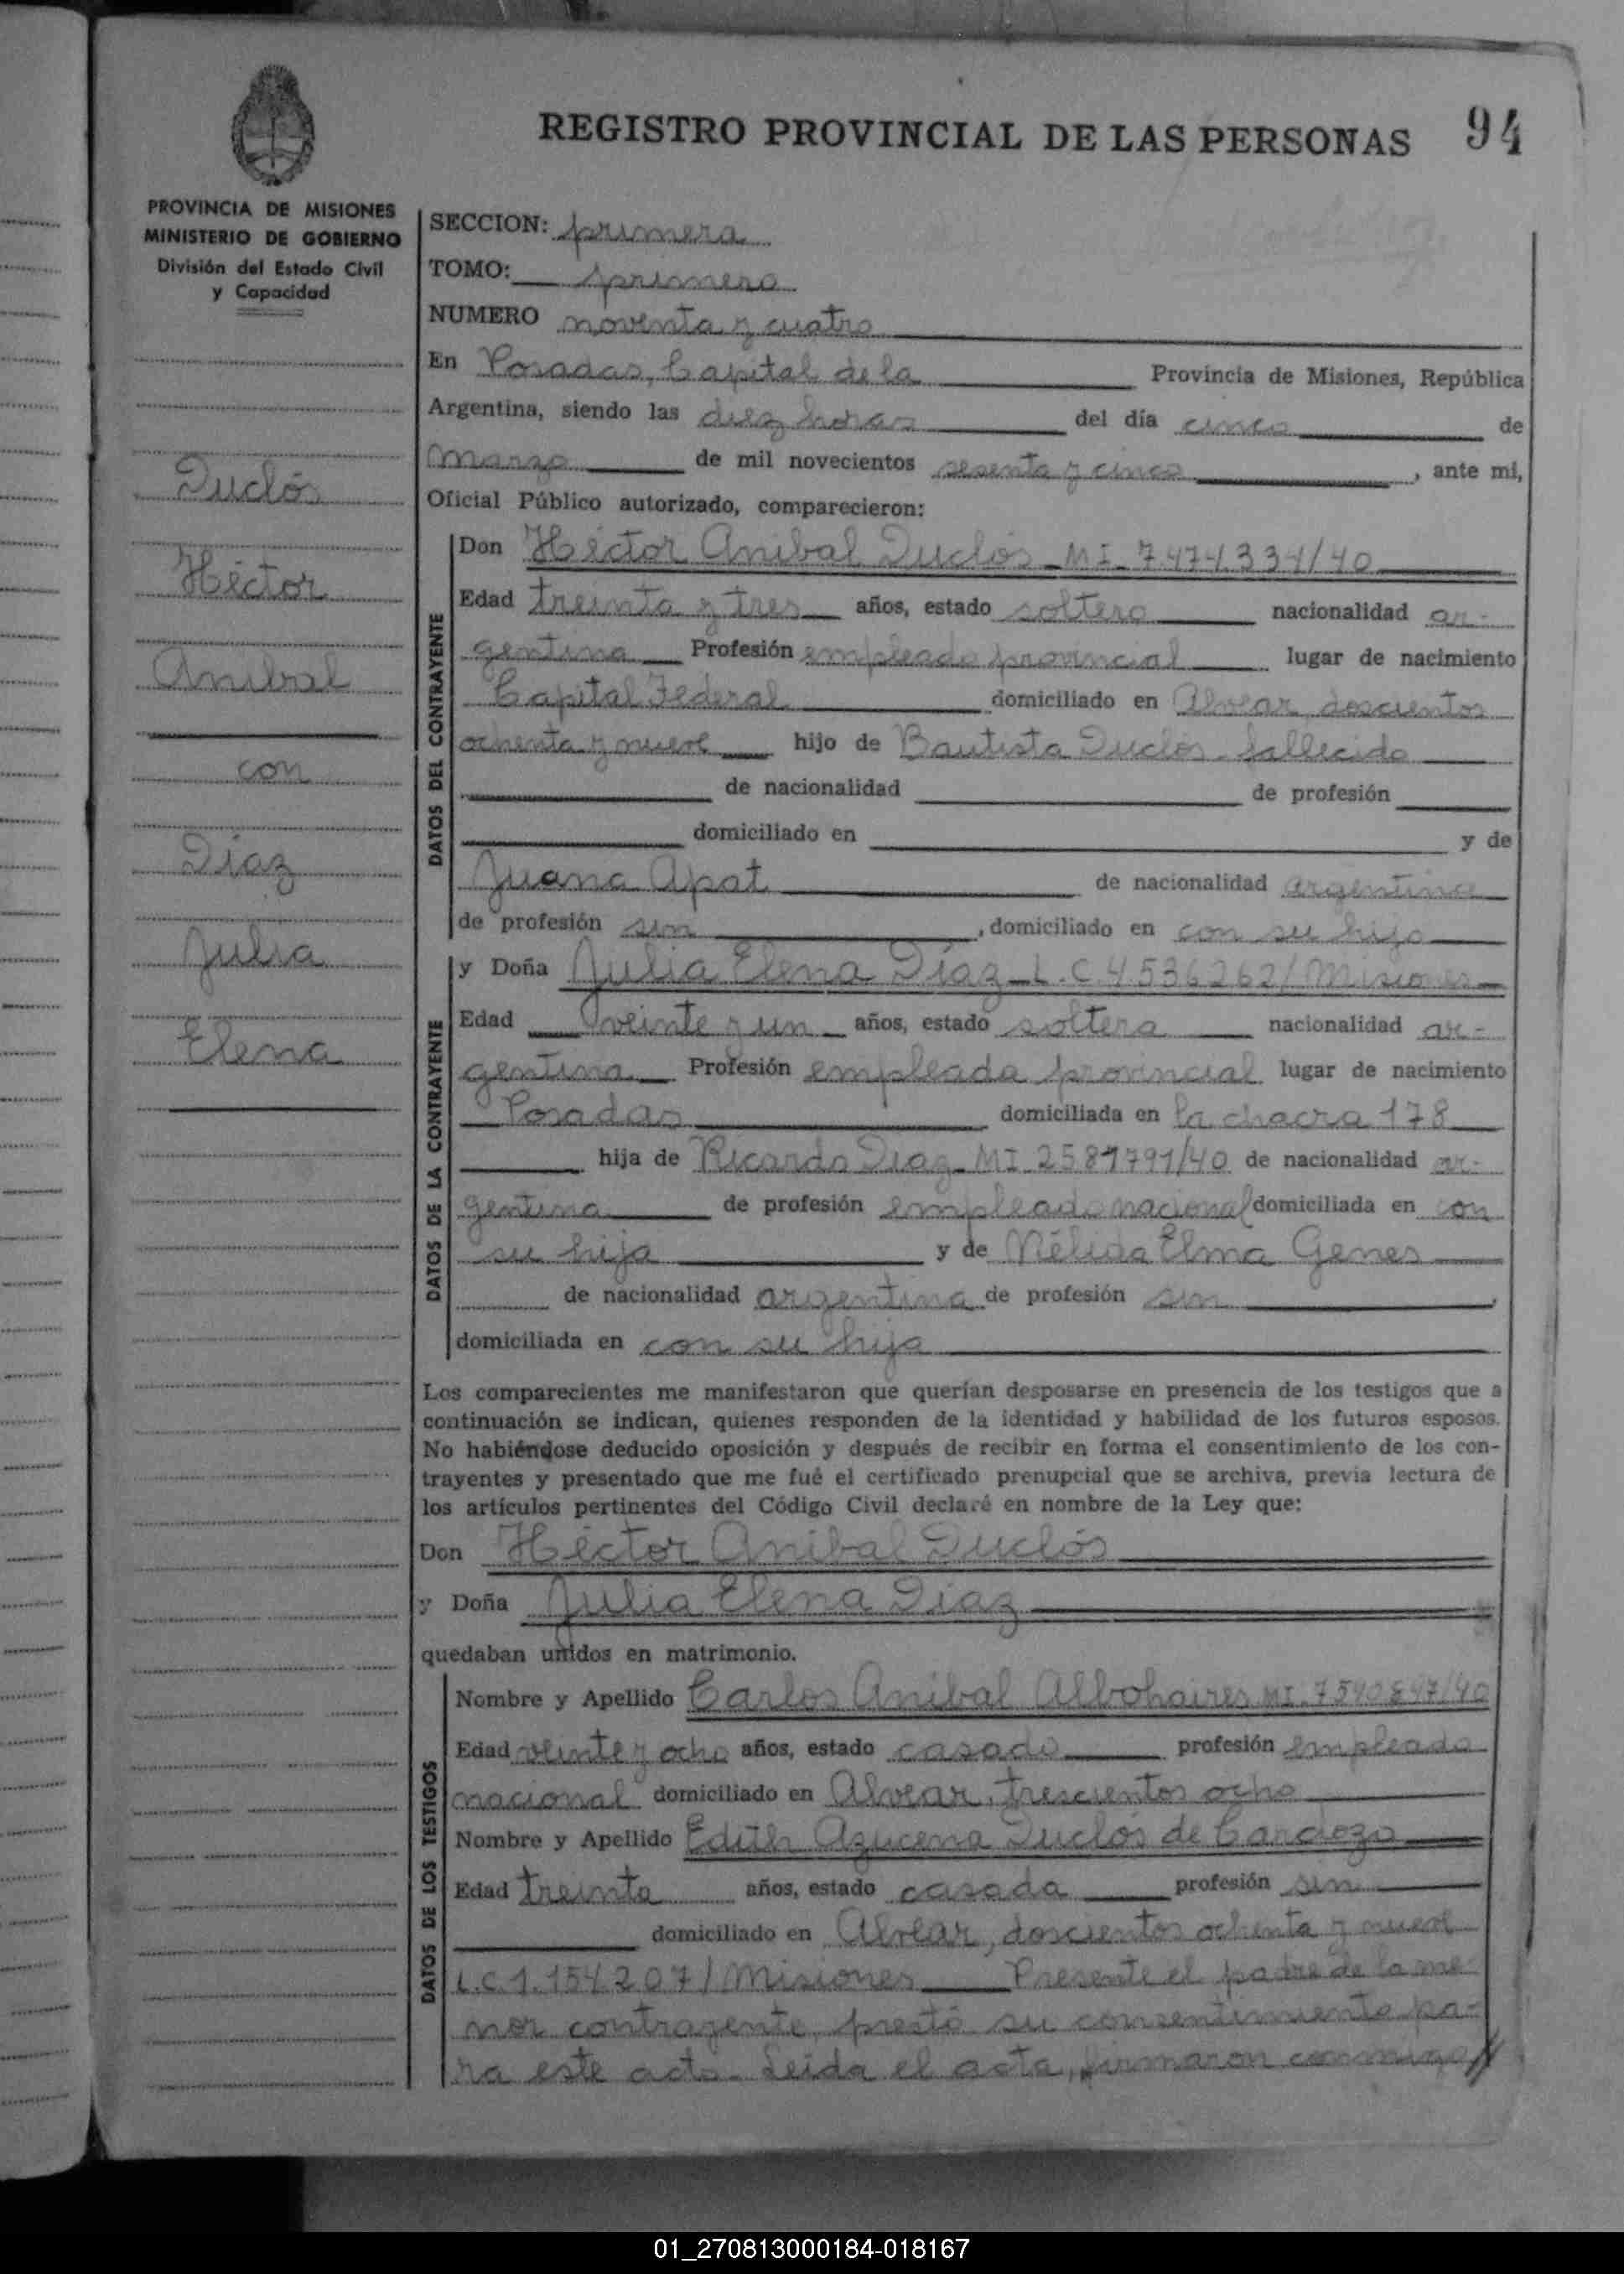 REGISTRO PROVINCIAL DE LAS PERSONAS 94
PROVINCIA DE MISIONES
MINISTERIO DE GOBIERNO
División del Estado Civil
y Capacidad
Duclós
Héctor
Anibal
con
Díaz
Julia
Elena
SECCION: primera
TOMO: primero
NUMERO noventa y cuatro
En Posadas, Capital de la Provincia de Misiones, República
Argentina, siendo las diez horas del día cinco de
marzo de mil novecientos sesenta y cinco, ante mi,
Oficial Público autorizado, comparecieron:
DATOS DEL CONTRAYENTE
Don Héctor Anibal Duclós - MI. 7.474.334/40
Edad treinta y tres años, estado soltero nacionalidad ar-
gentina Profesión empleado provincial lugar de nacimiento
Capital Federal domiciliado en Alvear, doscientos
ochenta y nueve hijo de Bautista Duclós - fallecido
de nacionalidad de profesión
domiciliado en y de
Juana Apat de nacionalidad argentina
de profesión sin, domiciliado en con su hijo
DATOS DE LA CONTRAYENTE
y Doña Julia Elena Díaz - L.C. 4.536262/Misiones
Edad veinte y un años, estado soltera nacionalidad ar-
gentina Profesión empleada provincial lugar de nacimiento
Posadas domiciliada en la chacra 178
hija de Ricardo Díaz - MI. 2581791/40 de nacionalidad ar-
gentina de profesión empleado nacional domiciliada en con
su hija y de Nélida Elma Genes
de nacionalidad argentina de profesión sin,
domiciliada en con su hija
Los comparecientes me manifestaron que querían desposarse en presencia de los testigos que a
continuación se indican, quienes responden de la identidad y habilidad de los futuros esposos.
No habiéndose deducido oposición y después de recibir en forma el consentimiento de los con-
trayentes y presentado que me fué el certificado prenupcial que se archiva, previa lectura de
los artículos pertinentes del Código Civil declaré en nombre de la Ley que:
Don Héctor Anibal Duclós
y Doña Julia Elena Díaz
quedaban unidos en matrimonio.
DATOS DE LOS TESTIGOS
Nombre y Apellido Carlos Anibal Albohaires MI. 7540847/40
Edad veinte y ocho años, estado casado profesión empleado
nacional domiciliado en Alvear, trescientos ocho
Nombre y Apellido Edith Azucena Duclós de Cardozo
Edad treinta años, estado casada profesión sin
domiciliado en Alvear, doscientos ochenta y nueve
L.C. 1.154.207/Misiones Presente el padre de la me-
nor contrayente, prestó su consentimiento pa-
ra este acto. Leida el acta, firmaron conmigo//
01_270813000184-018167